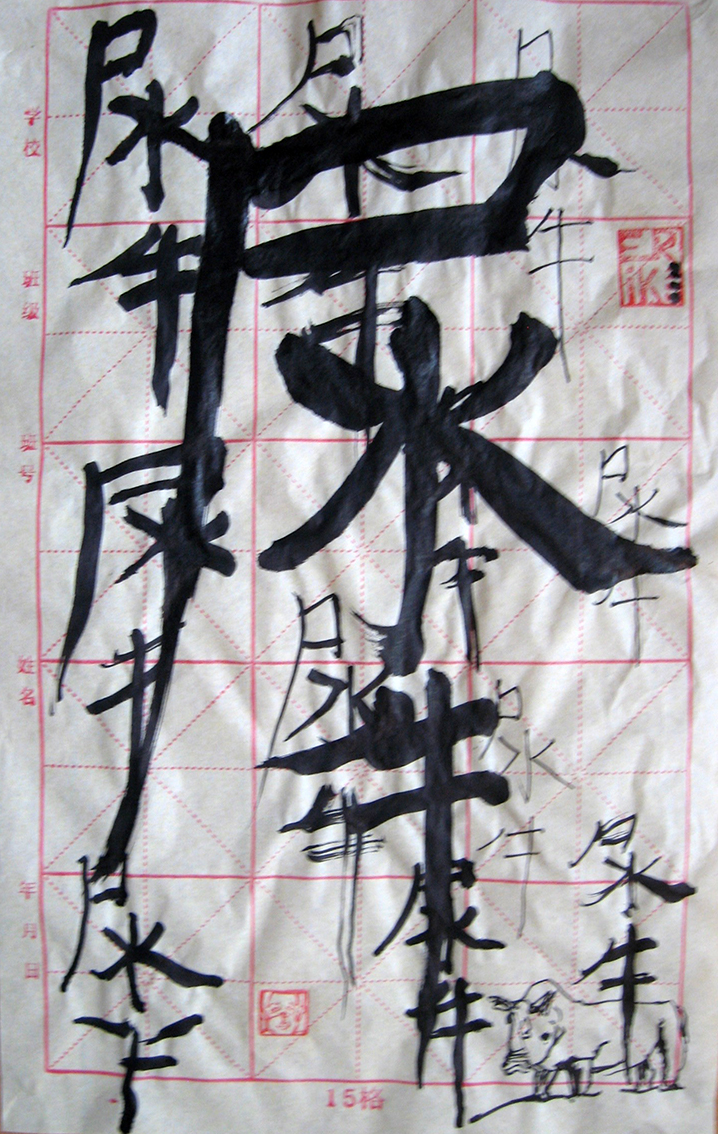 学校
班级
班号
姓名
年月日
尿牛
尿牛
尿牛
尿牛
尿牛
尿牛
尿牛
尿牛
尿牛
尿牛
尿牛
ERIK
15格